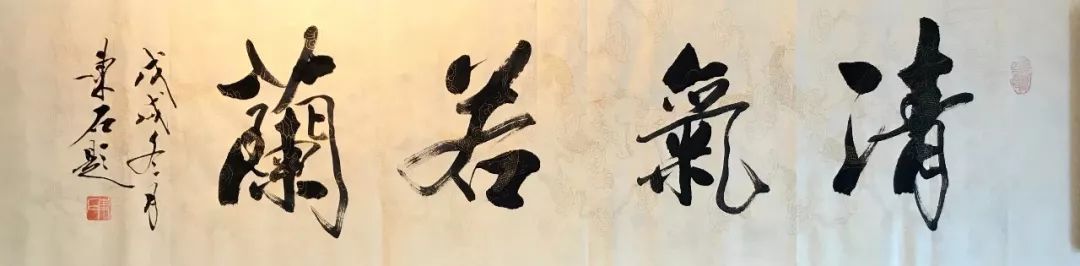 清氣若蘭
戊戌冬月
東石題